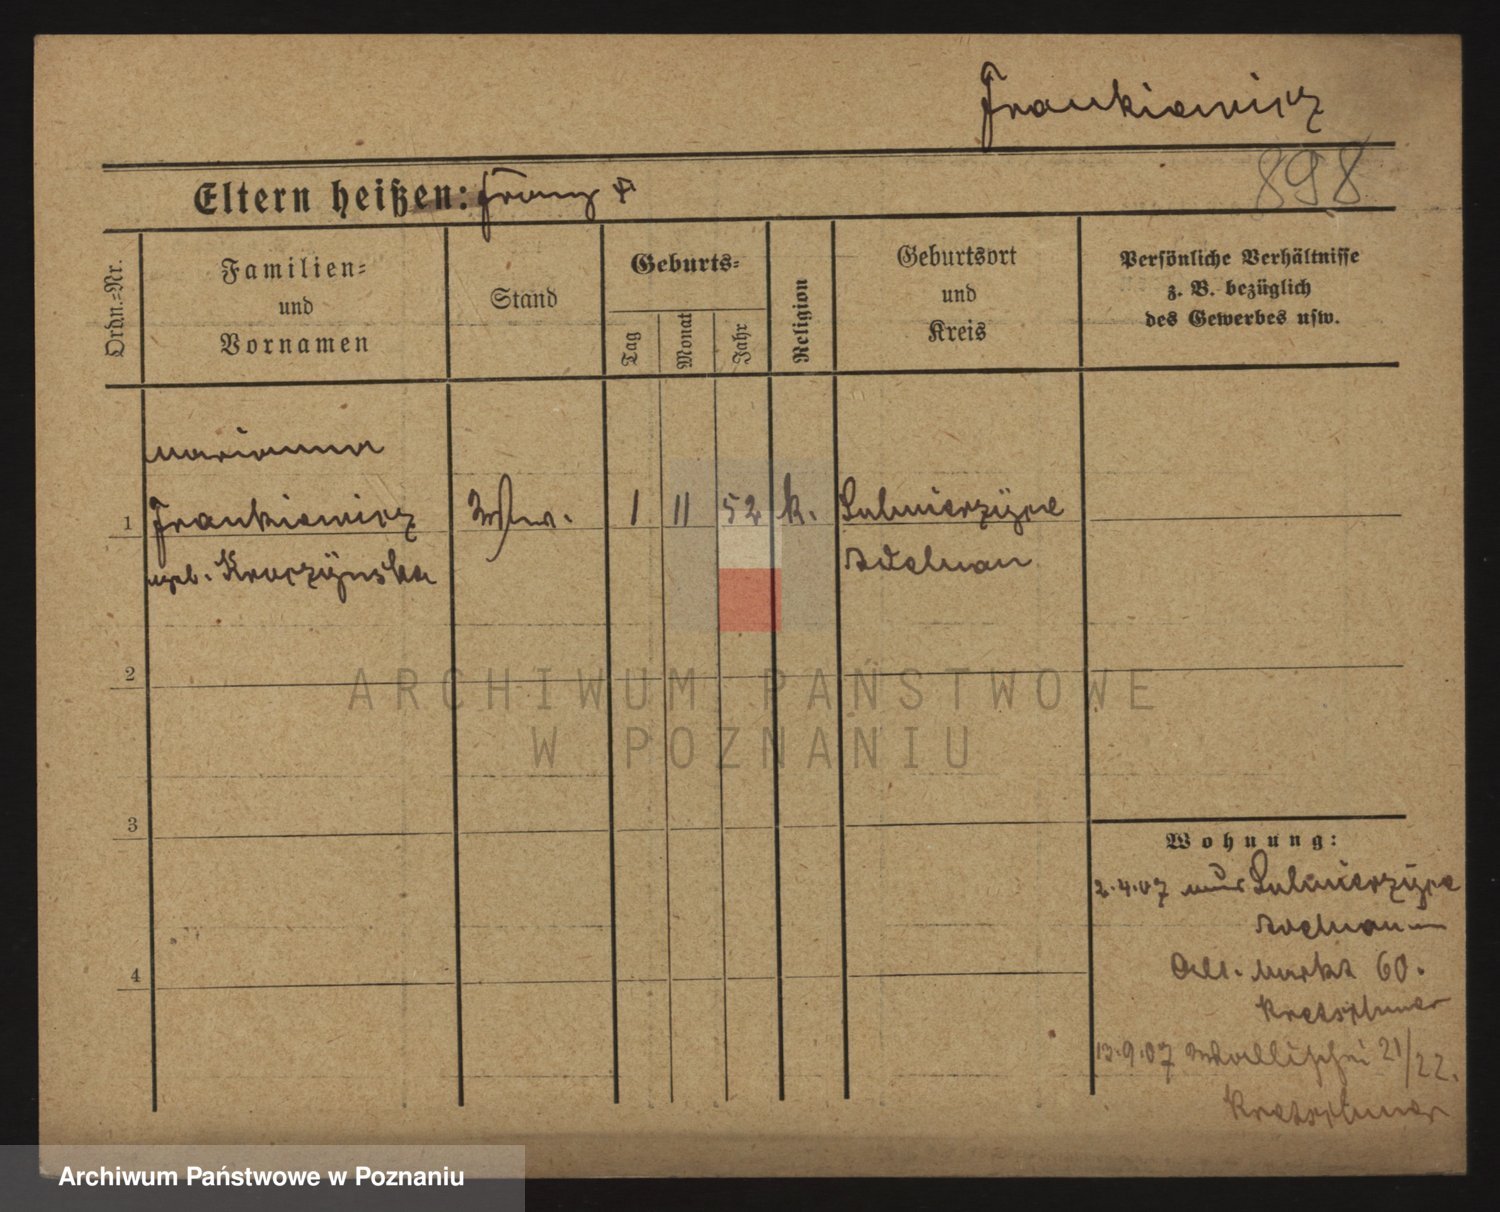 Frankiewicz
898
Eltern heißen: Franz †
Ordn.=Nr.
Familien=
und
Vornamen
Stand
Geburts=
Tag
Monat
Jahr
Religion
Geburtsort
und
Kreis
Persönliche Verhältnisse
z. B. bezüglich
des Gewerbes usw.
Marianna
1 Frankiewicz Ww. 1 11 52 k. Sulmierzyce
geb. Kroczynska Adelnau
2
3
4
Wohnung:
2.4.07 aus Sulmierzyce
Adelnau
Alt. Markt 60.
Kretschmer
13.9.07 Wallischei 21/22.
Kretschmer
ARCHIWUM PAŃSTWOWE
W POZNANIU
Archiwum Państwowe w Poznaniu